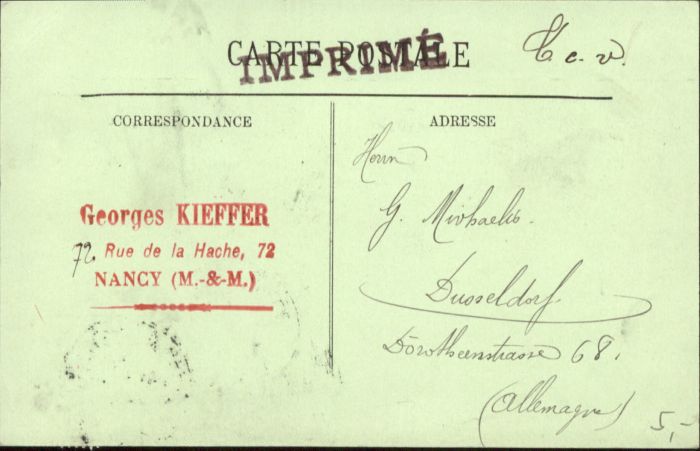 CARTE POSTALE
IMPRIMÉ
T. c. v.
CORRESPONDANCE
ADRESSE
Georges KIEFFER
72, Rue de la Hache, 72
NANCY (M.-&-M.)
Herrn
G. Michaelis.
Dusseldorf
Dorotheenstrasse 68.
(Allemagne)
5,-